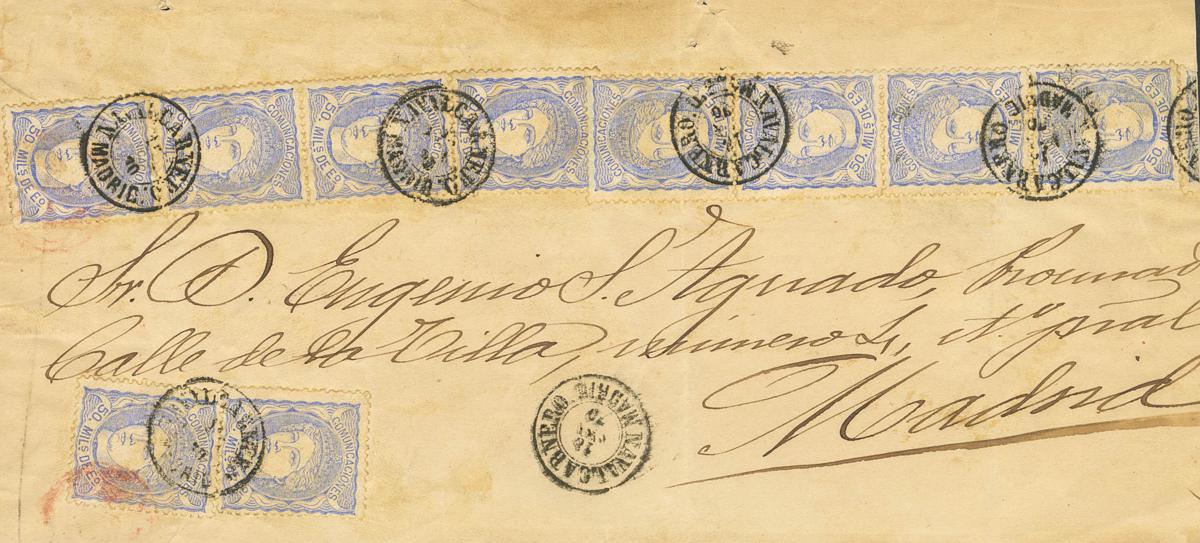 50 MILS DE Eº COMUNICACIONES 50 MILS DE Eº COMUNICACIONES COMUNICACIONES 50 MILS DE Eº COMUNICACIONES 50 MILS DE Eº
NAVALCARNERO MADRID
Sr. D. Eugenio S. Aguado,
Calle de la Villa, número 4, pral
Madrid
50 MILS DE Eº COMUNICACIONES COMUNICACIONES
NAVALCARNERO MADRID